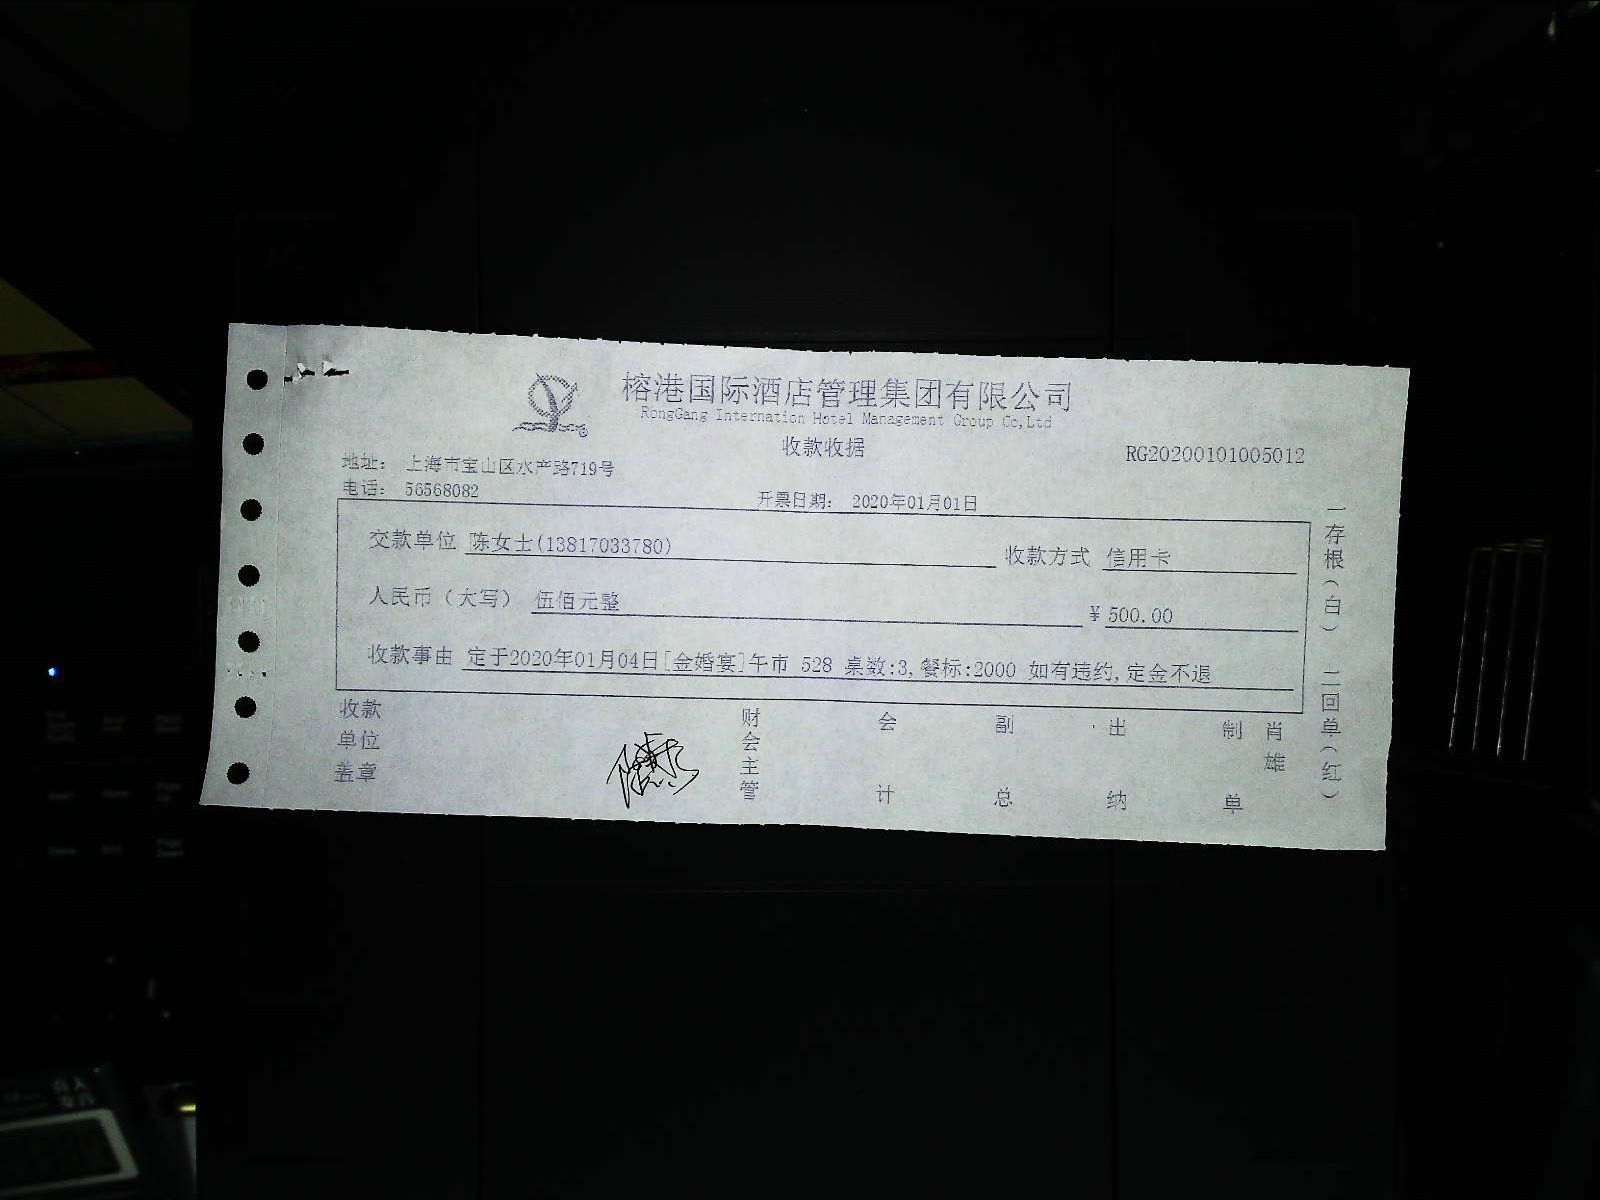 榕港国际酒店管理集团有限公司
RongGang Internation Hotel Management Group Co,Ltd
收款收据
RG20200101005012
地址： 上海市宝山区水产路719号
电话： 56568082
开票日期： 2020年01月01日
交款单位 陈女士(13817033780)
收款方式 信用卡
人民币（大写） 伍佰元整
¥ 500.00
收款事由 定于2020年01月04日[金婚宴]午市 528 桌数:3,餐标:2000 如有违约,定金不退
收款单位盖章
财会主管
会计
副总
出纳
制单
肖雄
一存根（白） 二回单（红）